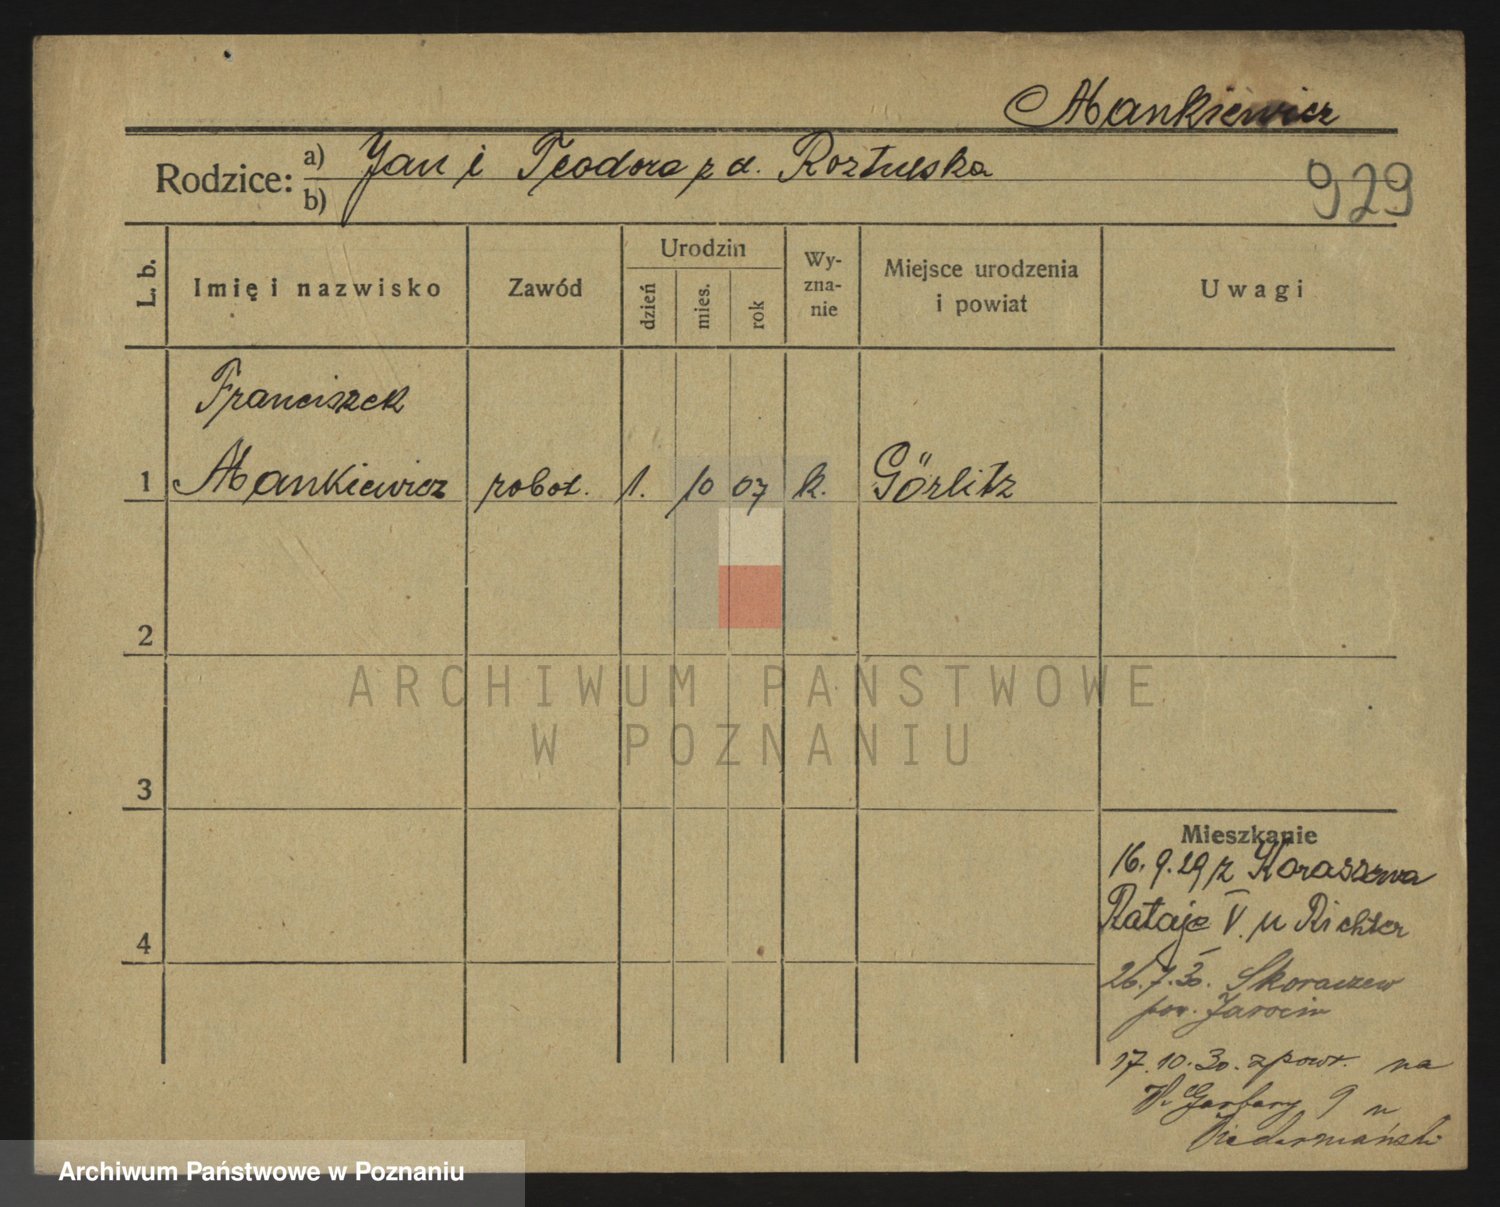 Mankiewicz
Rodzice: a) Jan i Teodora z d. Roztulska
b)
929
L. b.
Imię i nazwisko
Zawód
Urodzin
dzień
mies.
rok
Wy-
zna-
nie
Miejsce urodzenia
i powiat
Uwagi
Franciszek
1 Mankiewicz robot. 1. 10 07 k. Görlitz
2
ARCHIWUM PAŃSTWOWE
W POZNANIU
3
Mieszkanie
16.9.29 z
Rataje V. u Richter
4
26.7.30. Skoraczew
pow. Jarocin
17.10.30. z powr. na
W. Garbary 9 u
Archiwum Państwowe w Poznaniu